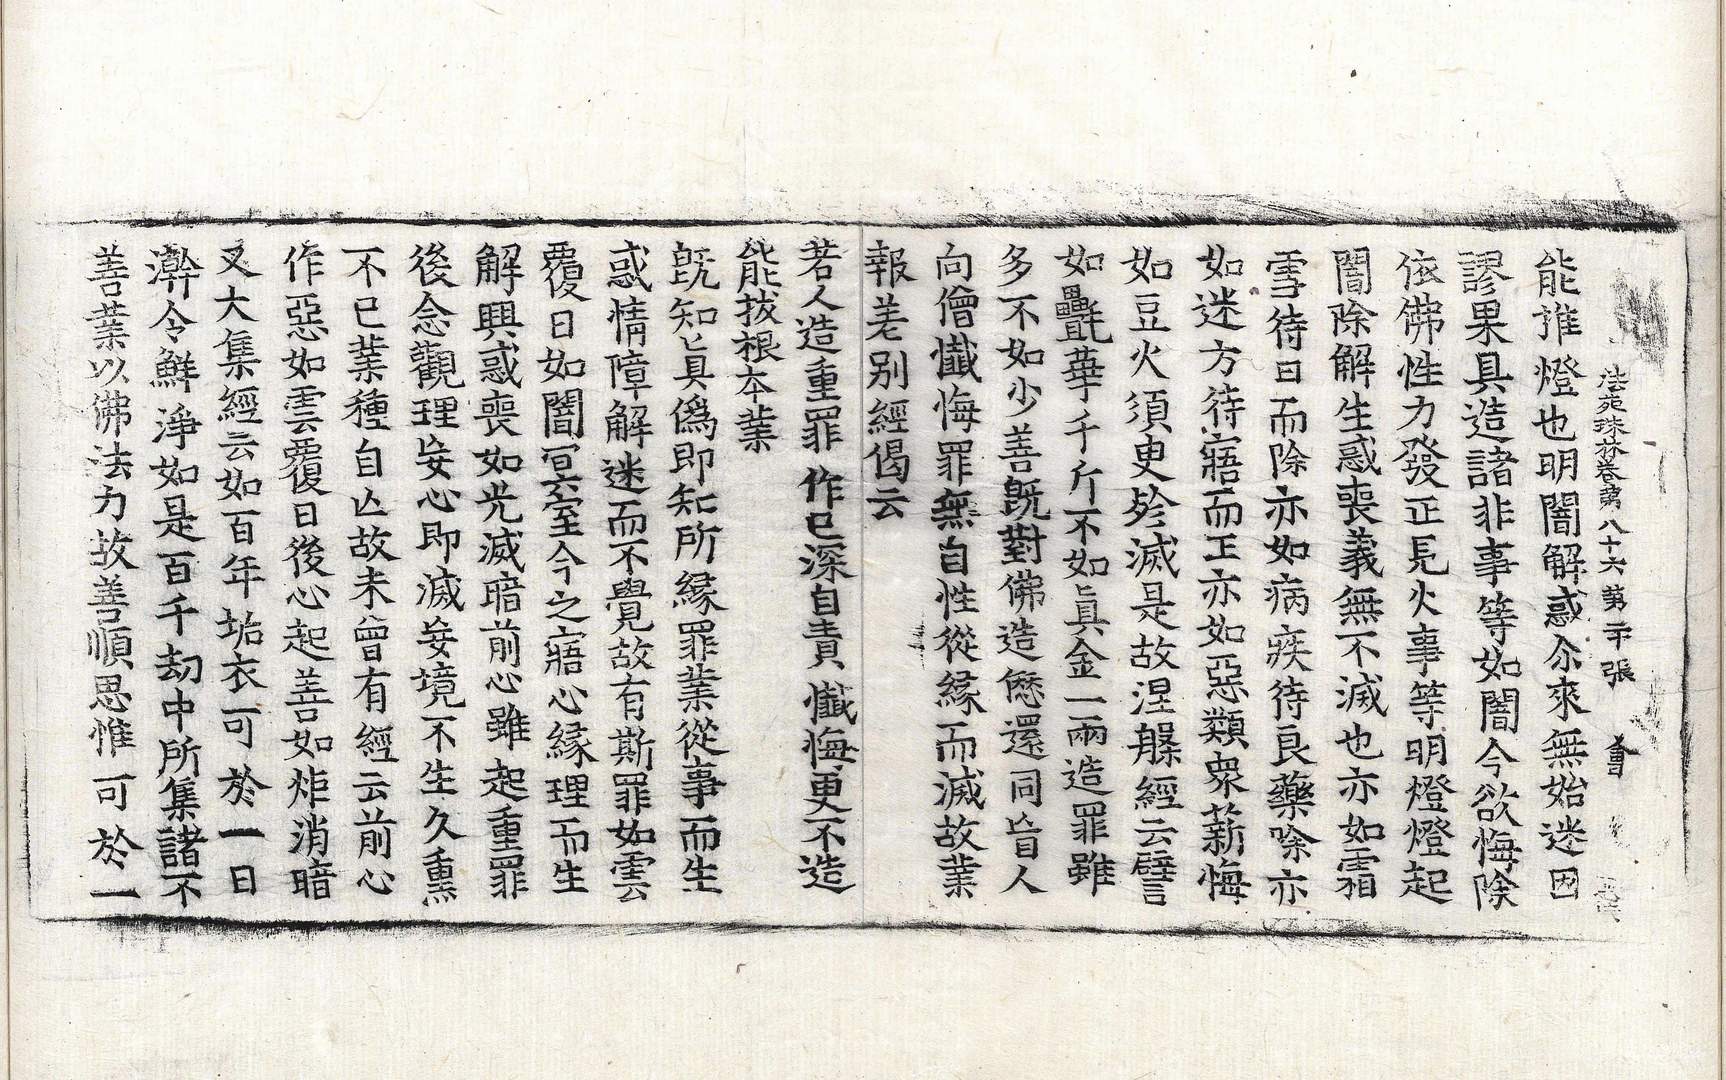 法苑珠林卷第八十六 第二十張 㑹
能推燈也明闇解惑尒來無始迷因
謬果具造諸非事等如闇今欲悔除
依佛性力發正見火事等明燈燈起
闇除解生惑喪義無不滅也亦如霜
雪待日而除亦如病疾待良藥除亦
如迷方待寤而正亦如惡類眾薪悔
如豆火須更能滅是故涅槃經云譬
如㲲華千斤不如真金一兩造罪雖
多不如少善旣對佛造𠎝還同昔人
向僧懺悔罪無自性從緣而滅故業
報差別經偈云
若人造重罪 作已深自責 懺悔更不造
能拔根本業
旣知真僞即知所緣罪業從事而生
惑情障解迷而不覺故有斯罪如雲
覆日如闇冥室今之寤心緣理而生
解興惑喪如光滅暗前心雖起重罪
後念觀理妄心即滅妄境不生久熏
不已業種自亾故未曾有經云前心
作惡如雲覆日後心起善如炬消暗
又大集經云如百年垢衣可於一日
澣令鮮淨如是百千劫中所集諸不
善業以佛法力故善順思惟可於一